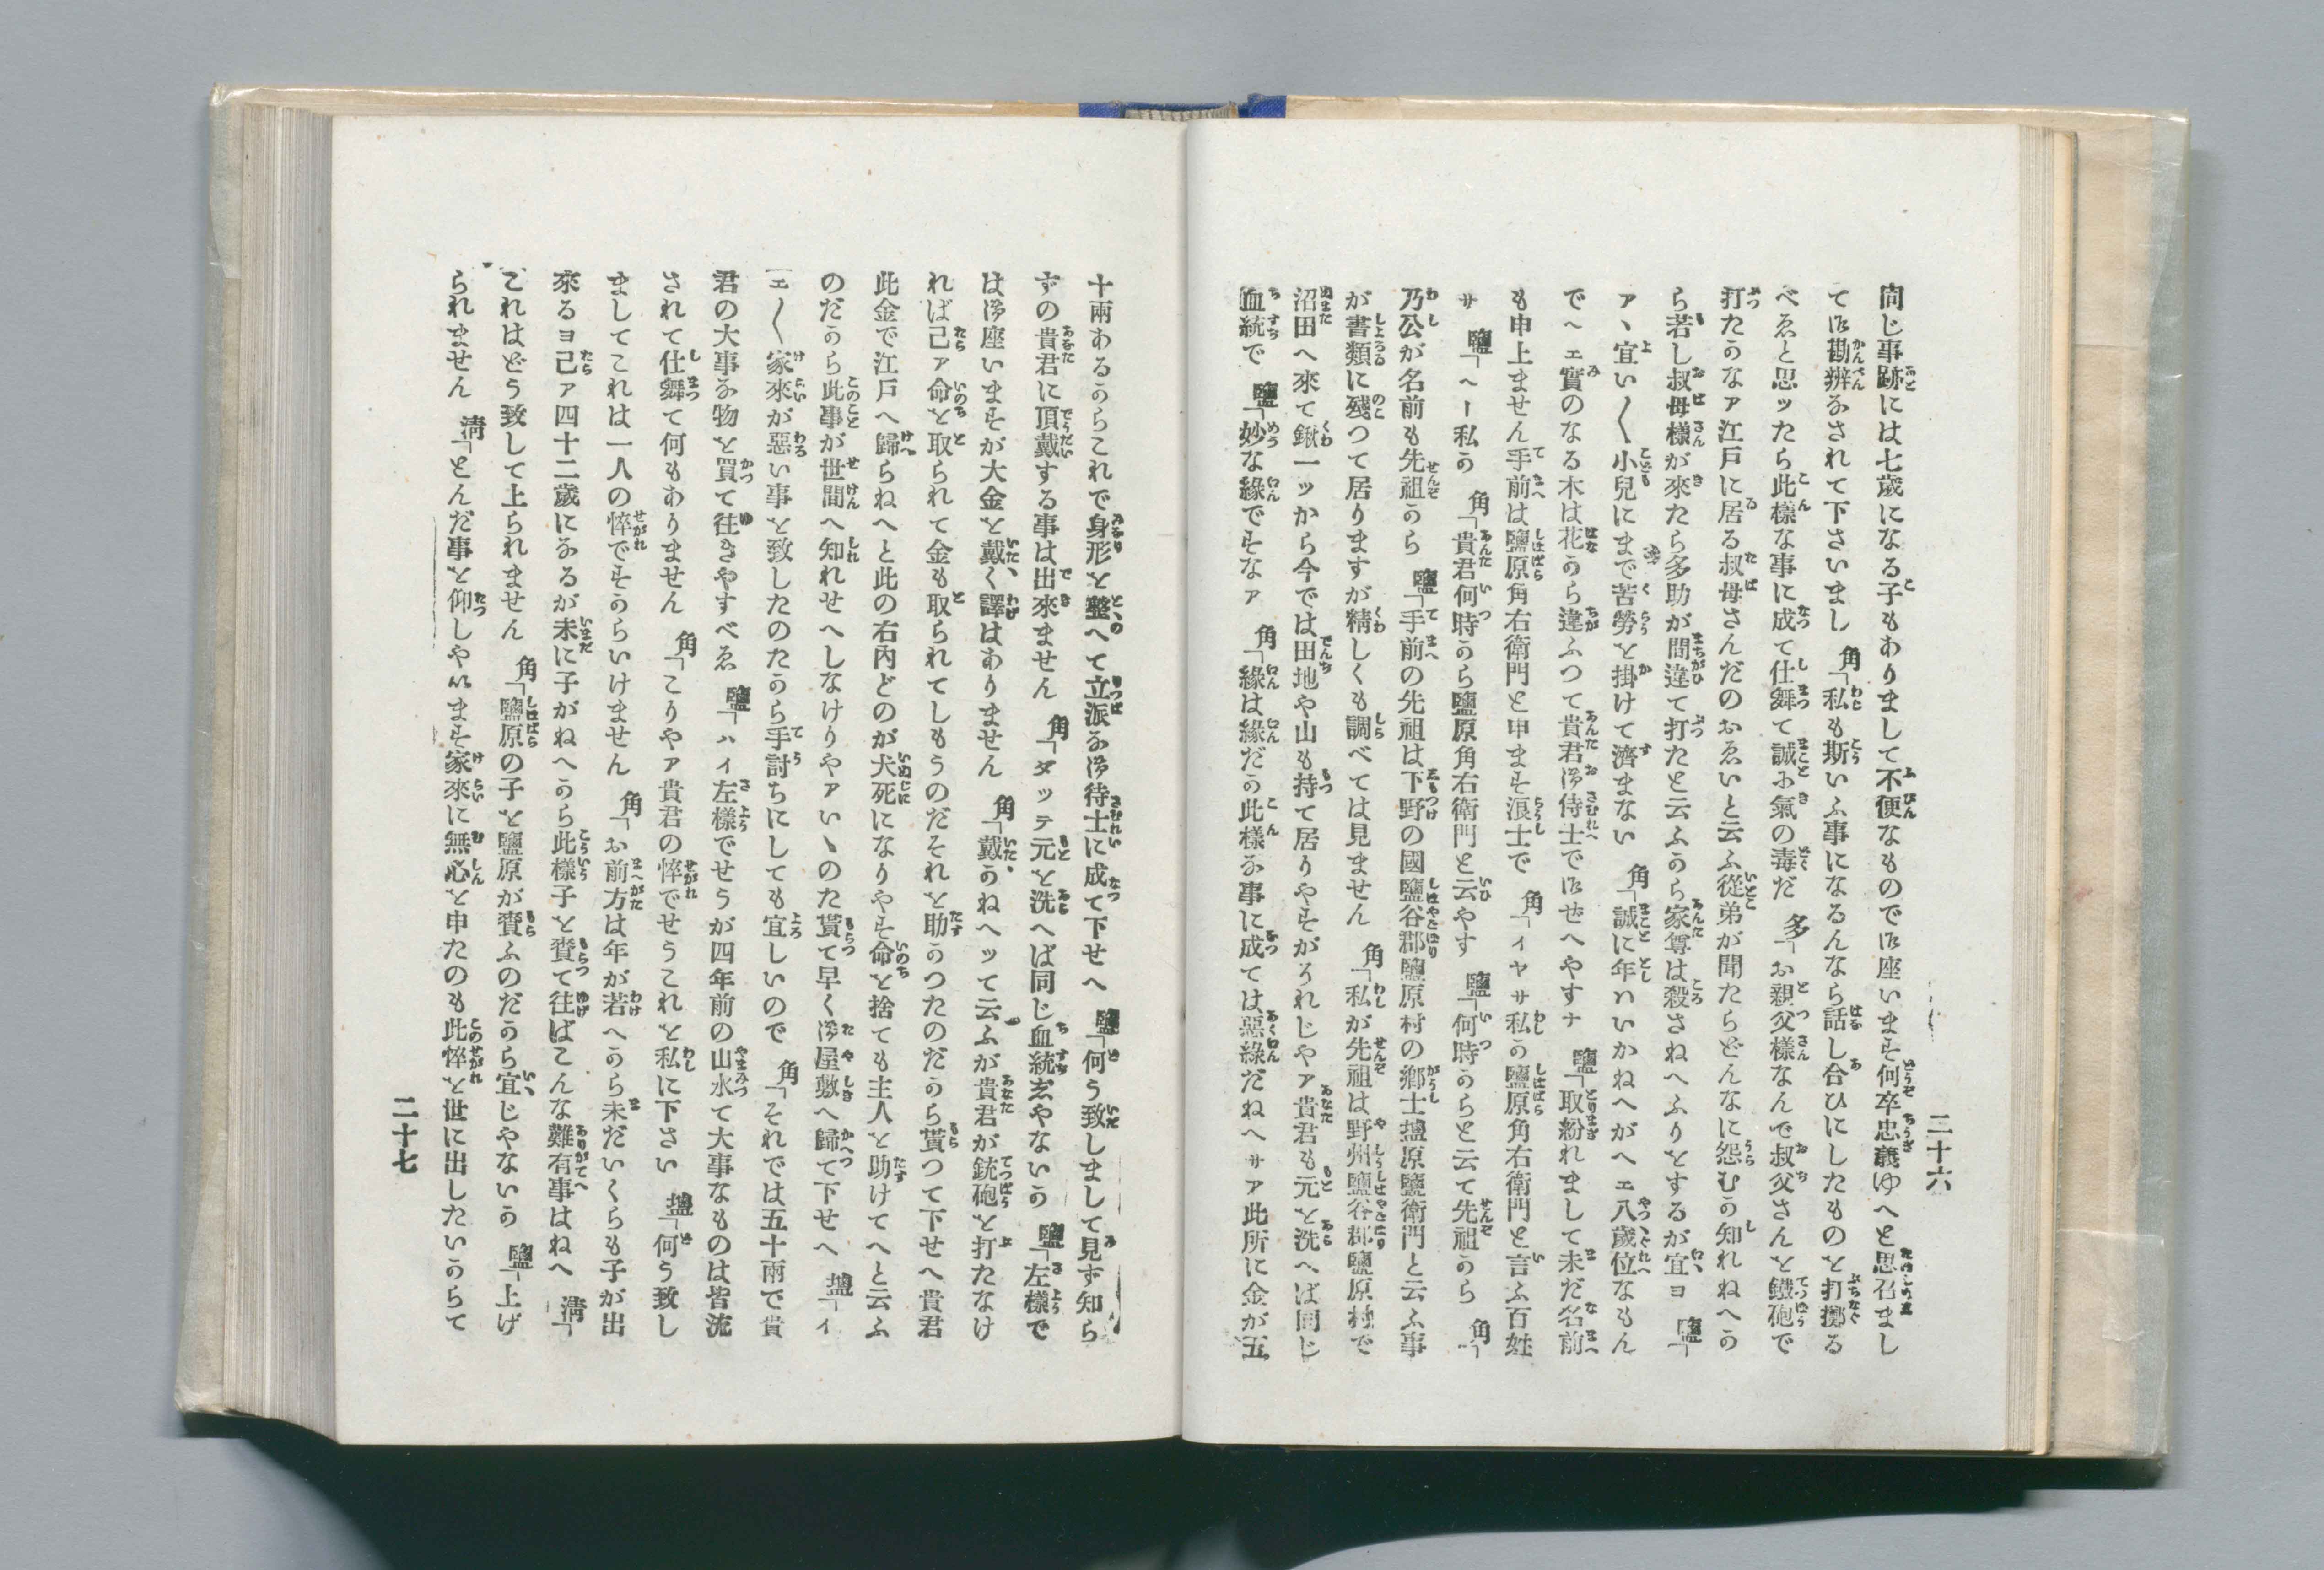 二十六
同じ事跡には七歳になる子もありまして不便なもので御座います何卒忠義ゆへと思召まし
て御勘辨なされて下さいまし　角「私も斯いふ事になるんなら話し合ひにしたものを打擲る
べゑと思ッたら此樣な事に成て仕舞て誠お氣の毒だ　多「お親父樣なんで叔父さんを鐵砲で
打たかなァ江戸に居る叔母さんだのおゑいと云ふ從弟が聞たらどんなに怨むか知れねへか
ら若し叔母樣が來たら多助が間違て打たと云ふから家尊は殺さねへふりをするが宜ヨ　鹽「
アヽ宜い〱小兒にまで苦勞を掛けて濟まない　角「誠に年ハいかねへがヘエ八歳位なもん
でヘエ實のなる木は花から違ふつて貴君御侍士で御ぜへやすナ　鹽「取紛れまして未だ名前
も申上ません手前は鹽原角右衛門と申ます浪士で　角「イヤサ私か鹽原角右衛門と言ふ百姓
サ　鹽「ヘー私か　角「貴君何時から鹽原角右衛門と云やす　鹽「何時からと云て先祖から　角「
乃公が名前も先祖から　鹽「手前の先祖は下野の國鹽谷郡鹽原村の郷士塩原鹽衛門と云ふ事
が書類に殘つて居りますが精しくも調べては見ません　角「私が先祖は野州鹽谷郡鹽原村で
沼田へ來て鍬一ッから今では田地や山も持て居りやすがそれじやァ貴君も元を洗へば同じ
血統で　鹽「妙な緣ですなァ　角「緣は緣だか此樣な事に成ては惡緣だねへサア此所に金が五
十兩あるからこれで身形を整へて立派な御侍士に成て下せへ　鹽「何う致しまして見ず知ら
ずの貴君に頂戴する事は出來ません　角「ダッテ元を洗へば同じ血統ぢやないか　鹽「左樣で
は御座いますが大金を戴く譯はありません　角「戴かねヘッて云ふが貴君が銃砲を打たなけ
れば己ァ命を取られて金も取られてしもうのだそれを助かつたのだから貰つて下せへ貴君
此金で江戸へ歸らねへと此の右内どのが犬死になりやす命を捨ても主人を助けてへと云ふ
のだから此事が世間へ知れせへしなけりやァいヽのた貰て早く御屋敷へ歸て下せへ　塩「イ
エ〱家來が惡い事を致したのたから手討ちにしても宜しいので　角「それでは五十兩で貴
君の大事な物を買て往きやすべゑ　鹽「ハイ左樣でせうが四年前の山水て大事なものは皆流
されて仕舞て何もありません　角「こりやァ貴君の悴でせうこれを私に下さい　塩「何う致し
ましてこれは一人の悴ですからいけません　角「お前方は年が若へから未だいくらも子が出
來るヨ己ァ四十二歳になるが未に子がねへから此樣子を貰て往ばこんな難有事はねへ　淸「
これはどう致して上られません　角「鹽原の子を鹽原が貰ふのだから宜じやないか　鹽「上げ
られません　淸「とんだ事を仰しやいます家來に無心を申たのも此悴を世に出したいからて
二十七